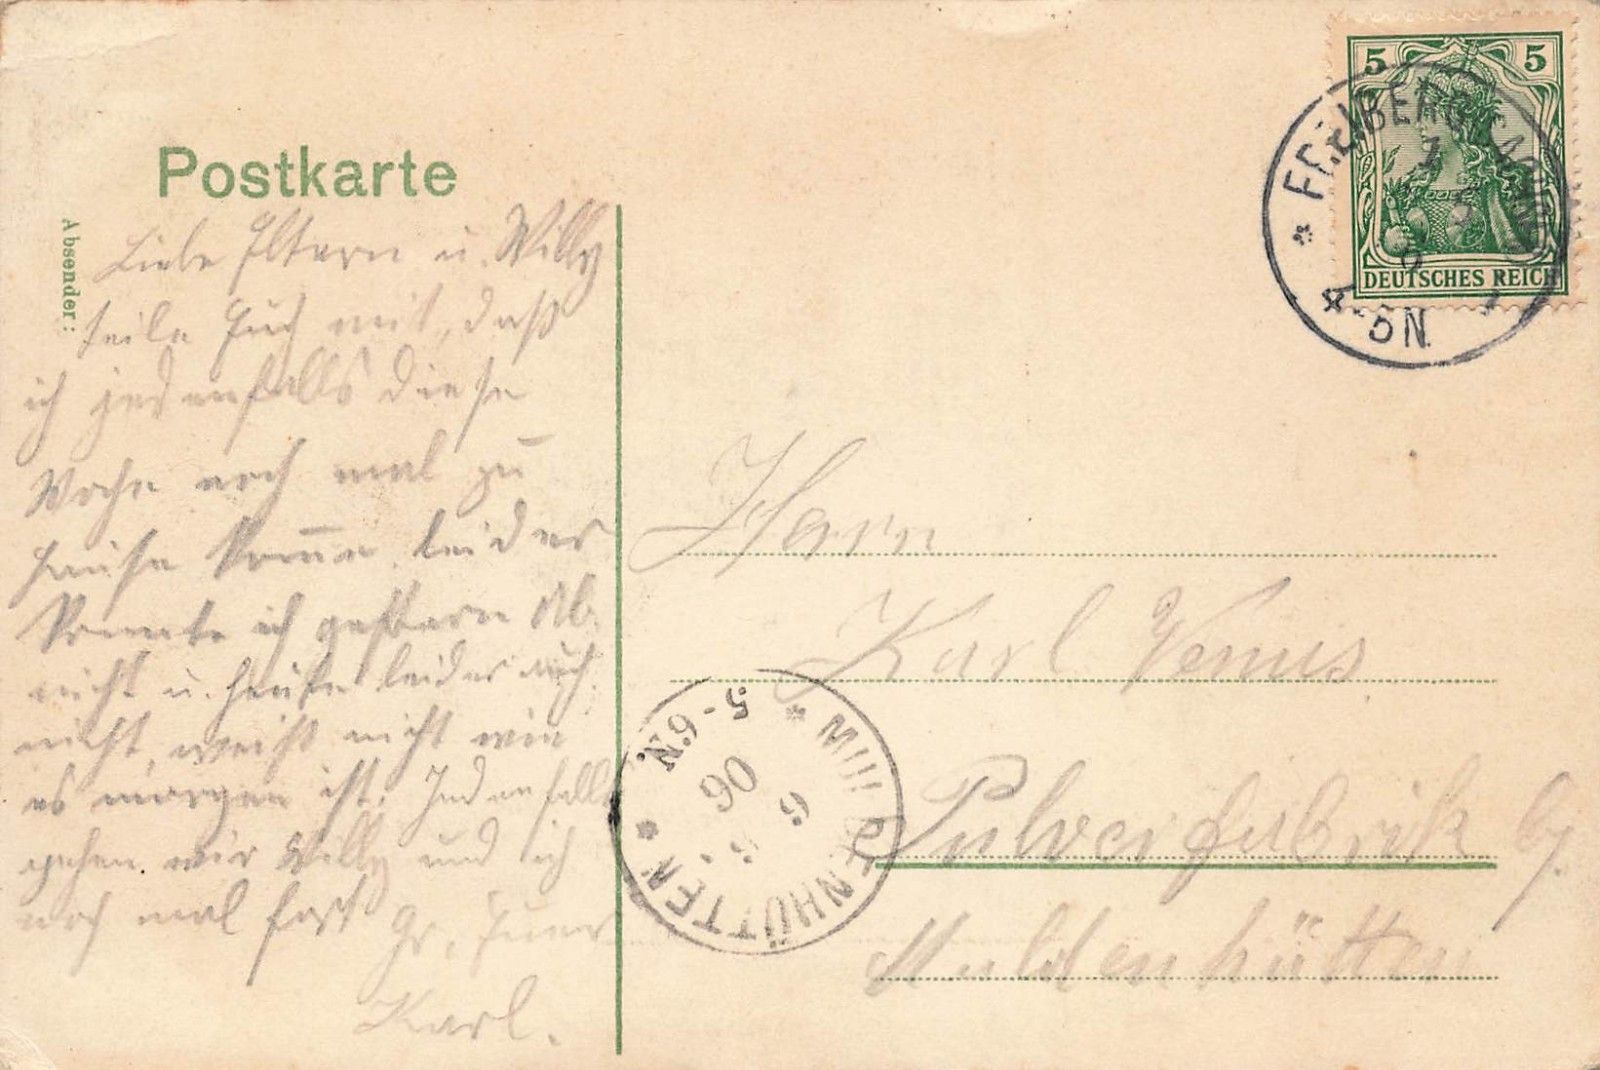 Postkarte
Absender:
Liebe Eltern u. Willy
teile Euch mit, daß
ich jedenfalls diese
Woche noch mal zu
Hause komme, leider
konnte ich gestern Ab.
nicht u. heute leider auch
nicht, weiß nicht wie
es morgen ist. Jedenfalls
gehen wir Willy und ich
noch mal fort Gr. Euer
Karl.
5 5
DEUTSCHES REICH
FREIBERG (SACHSEN)
4-5N
Herrn
Karl Venus
Pulverfabrik b/.
Muldenhütten
MULDENHÜTTEN
5-6N.
06